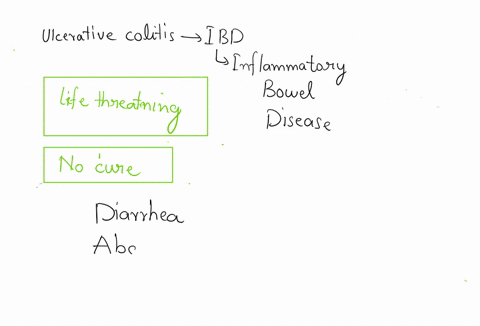 Ulcerative colitis → IBD
↳ Inflammatory
Bowel
Disease
life threatning
No cure
Diarrhea
Abc